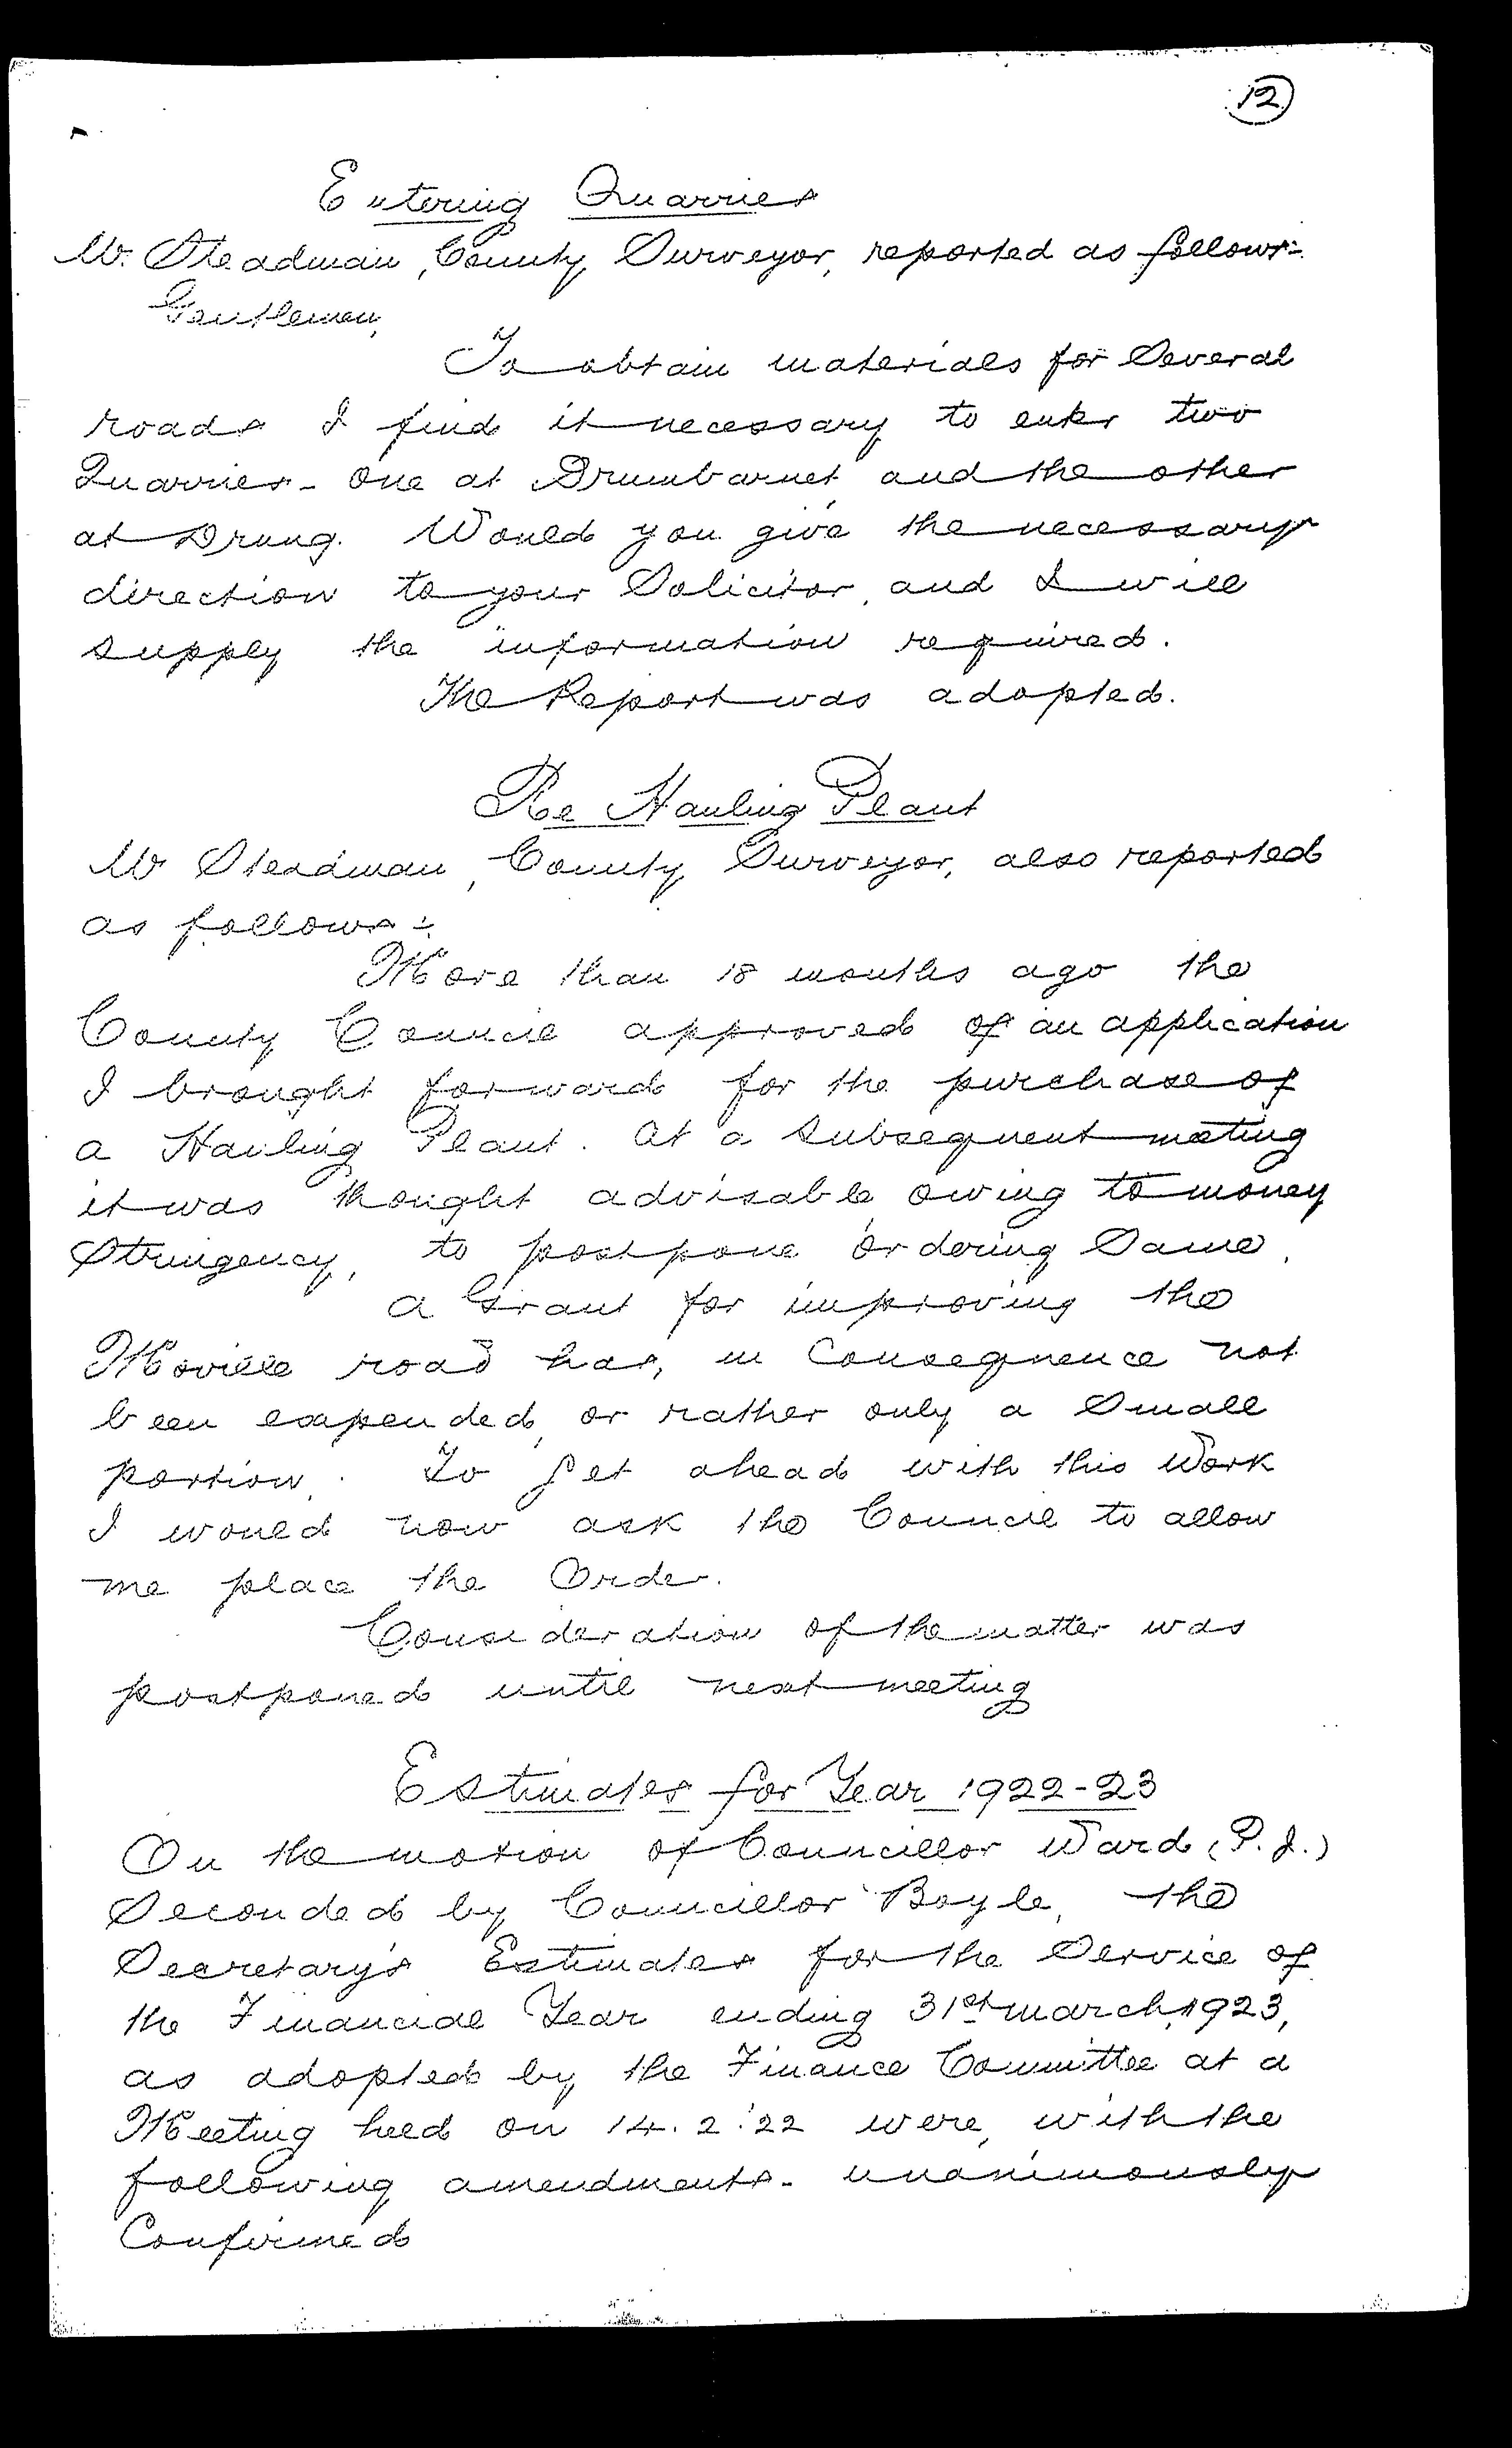 12
Entering Quarries
Mr. Steadman, County Surveyor, reported as follows:-
Gentlemen,
To obtain materials for Several
roads I find it necessary to enter two
Quarries - One at Drumbarnet and the other
at Drung. Would you give the necessary
direction to your Solicitor, and I will
supply the information required.
The Report was adopted.
Re Hauling Plant
Mr Steadman, County Surveyor, also reported
as follows:-
More than 18 months ago the
County Council approved of an application
I brought forward for the purchase of
a Hauling Plant. At a Subsequent meeting
it was thought advisable owing to money
Stringency, to postpone Ordering Same.
A Grant for improving the
Moville road has, in Consequence not
been expended, or rather only a Small
portion. To get ahead with this Work
I would now ask the Council to allow
me place the Order.
Consideration of the matter was
postponed until next meeting
Estimates for Year 1922-23
On the motion of Councillor Ward (P.J.)
Seconded by Councillor Boyle, the
Secretary's Estimates for the Service of
the Financial Year ending 31st March, 1923,
as adopted by the Finance Committee at a
Meeting held on 14.2.'22 were, with the
following amendments - unanimously
Confirmed